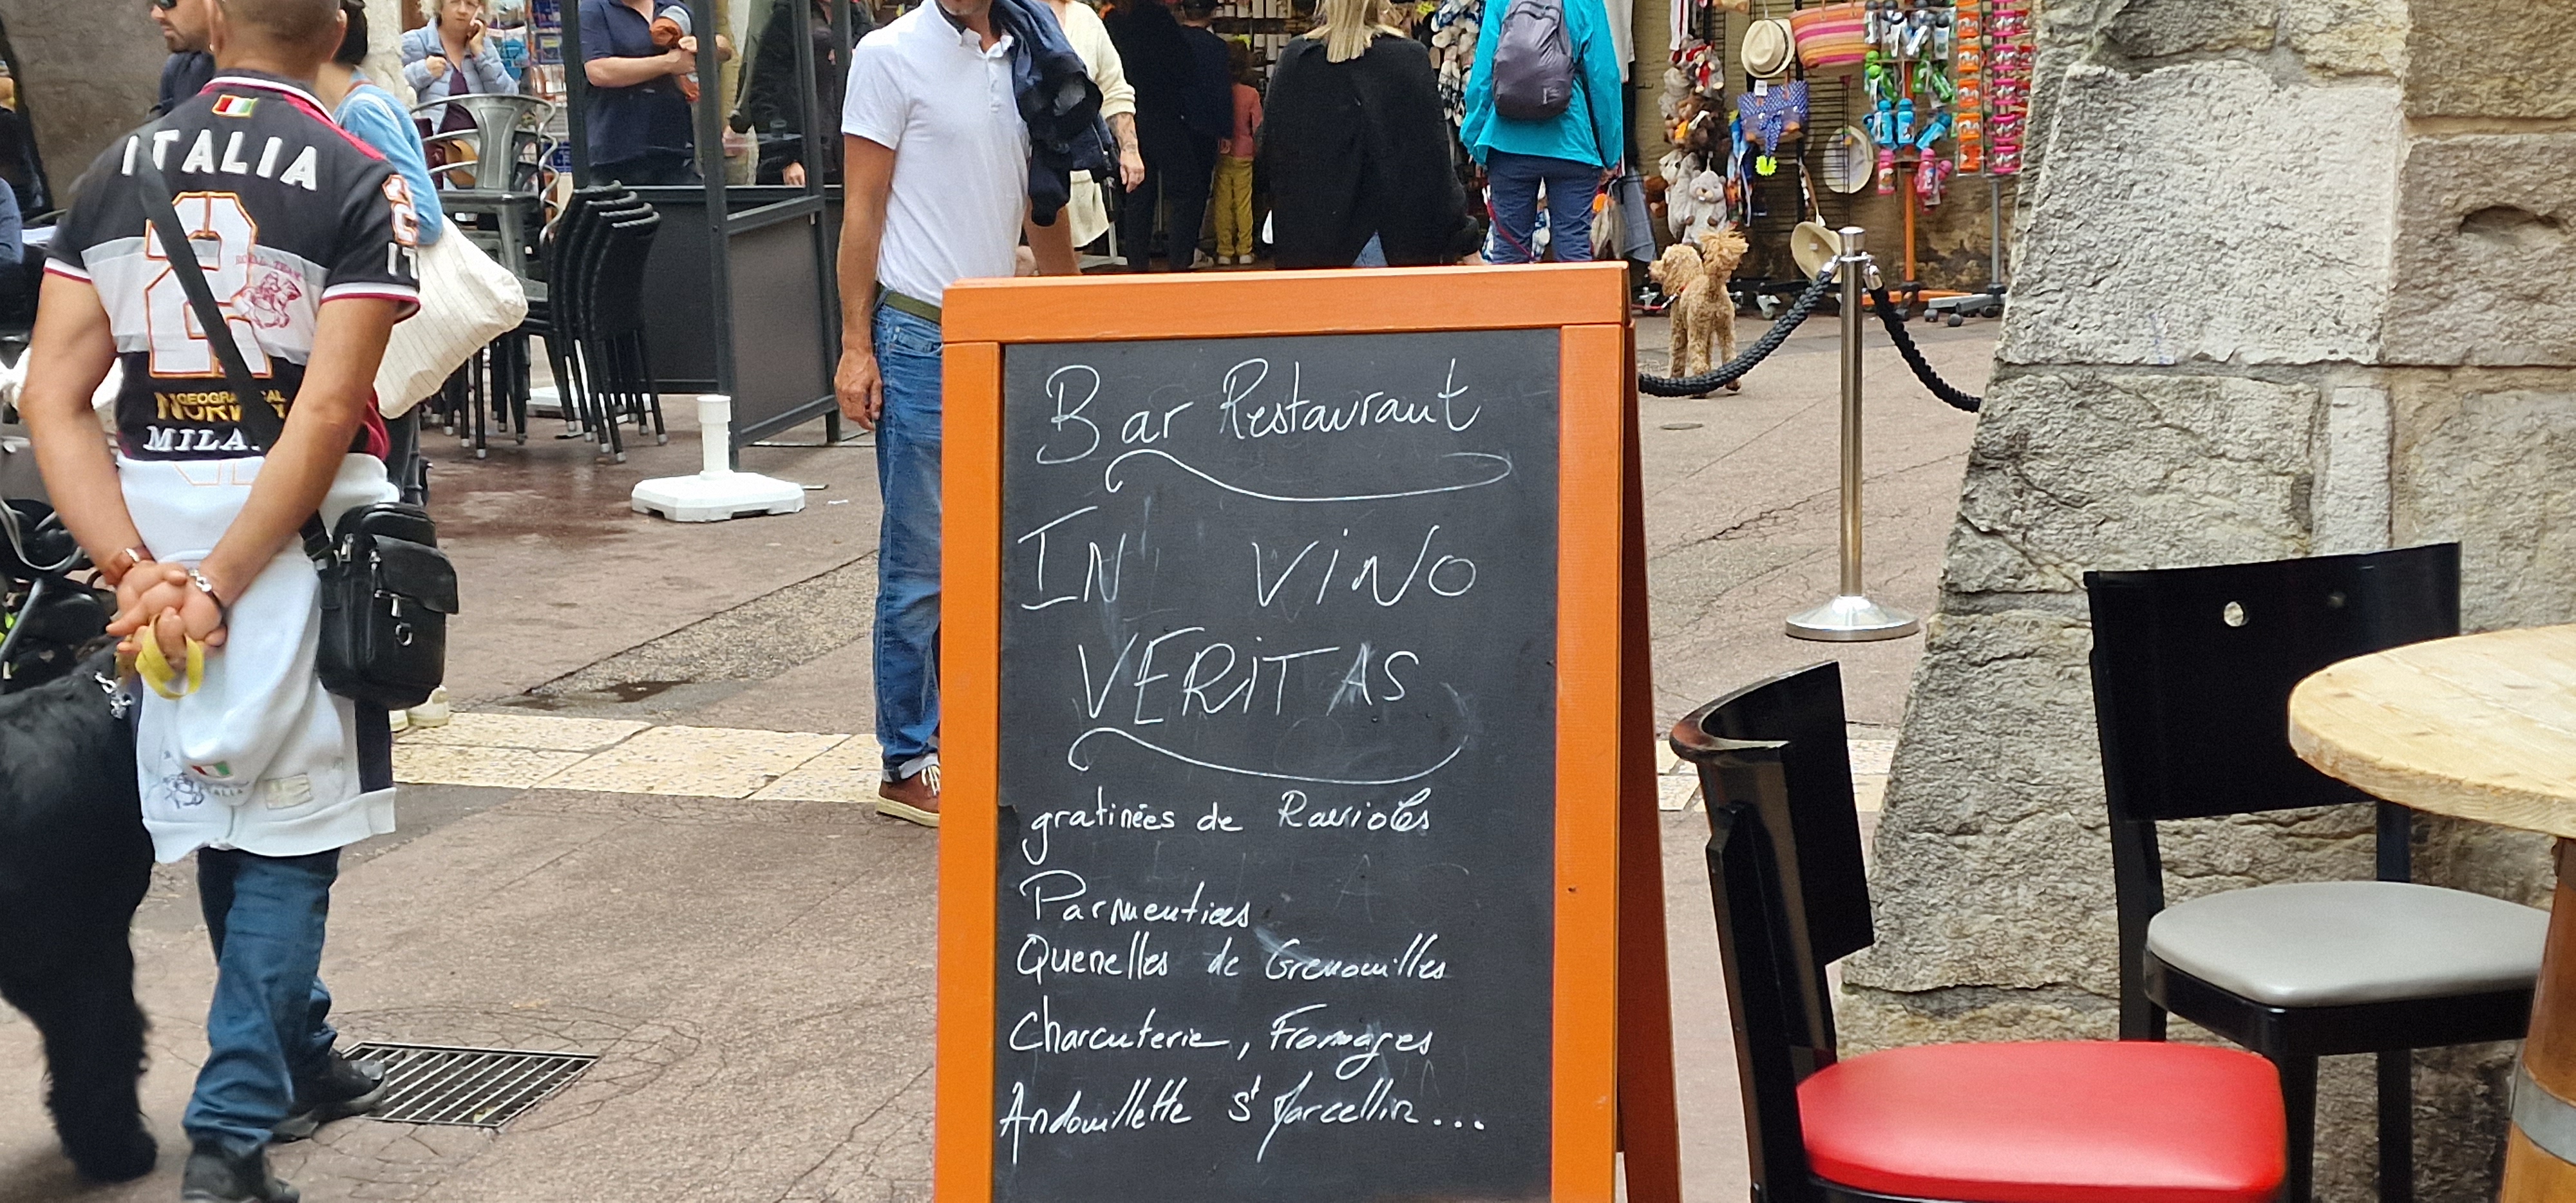 ITALIA
2
ROYAL TEAM
GEOGRAPHICAL
NORWAY
MILA
IT
ITALIA
Bar Restaurant
IN VINO
VERITAS
gratinées de Ravioles
Parmentiers
Quenelles de Grenouilles
Charcuterie, Fromages
Andouillette St Marcellin...